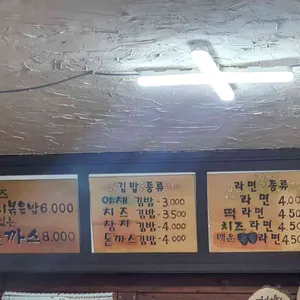 즈
볶음밥 6.000
는
까스 8.000
김밥 종류
야채 김밥 - 3.000
치즈 김밥 - 3.500
참치 김밥 - 4.000
돈까스김밥 - 4.000
라면 종류
라면 4.00
떡 라면 4.50
치즈 라면 4.50
매운 라면 4.50